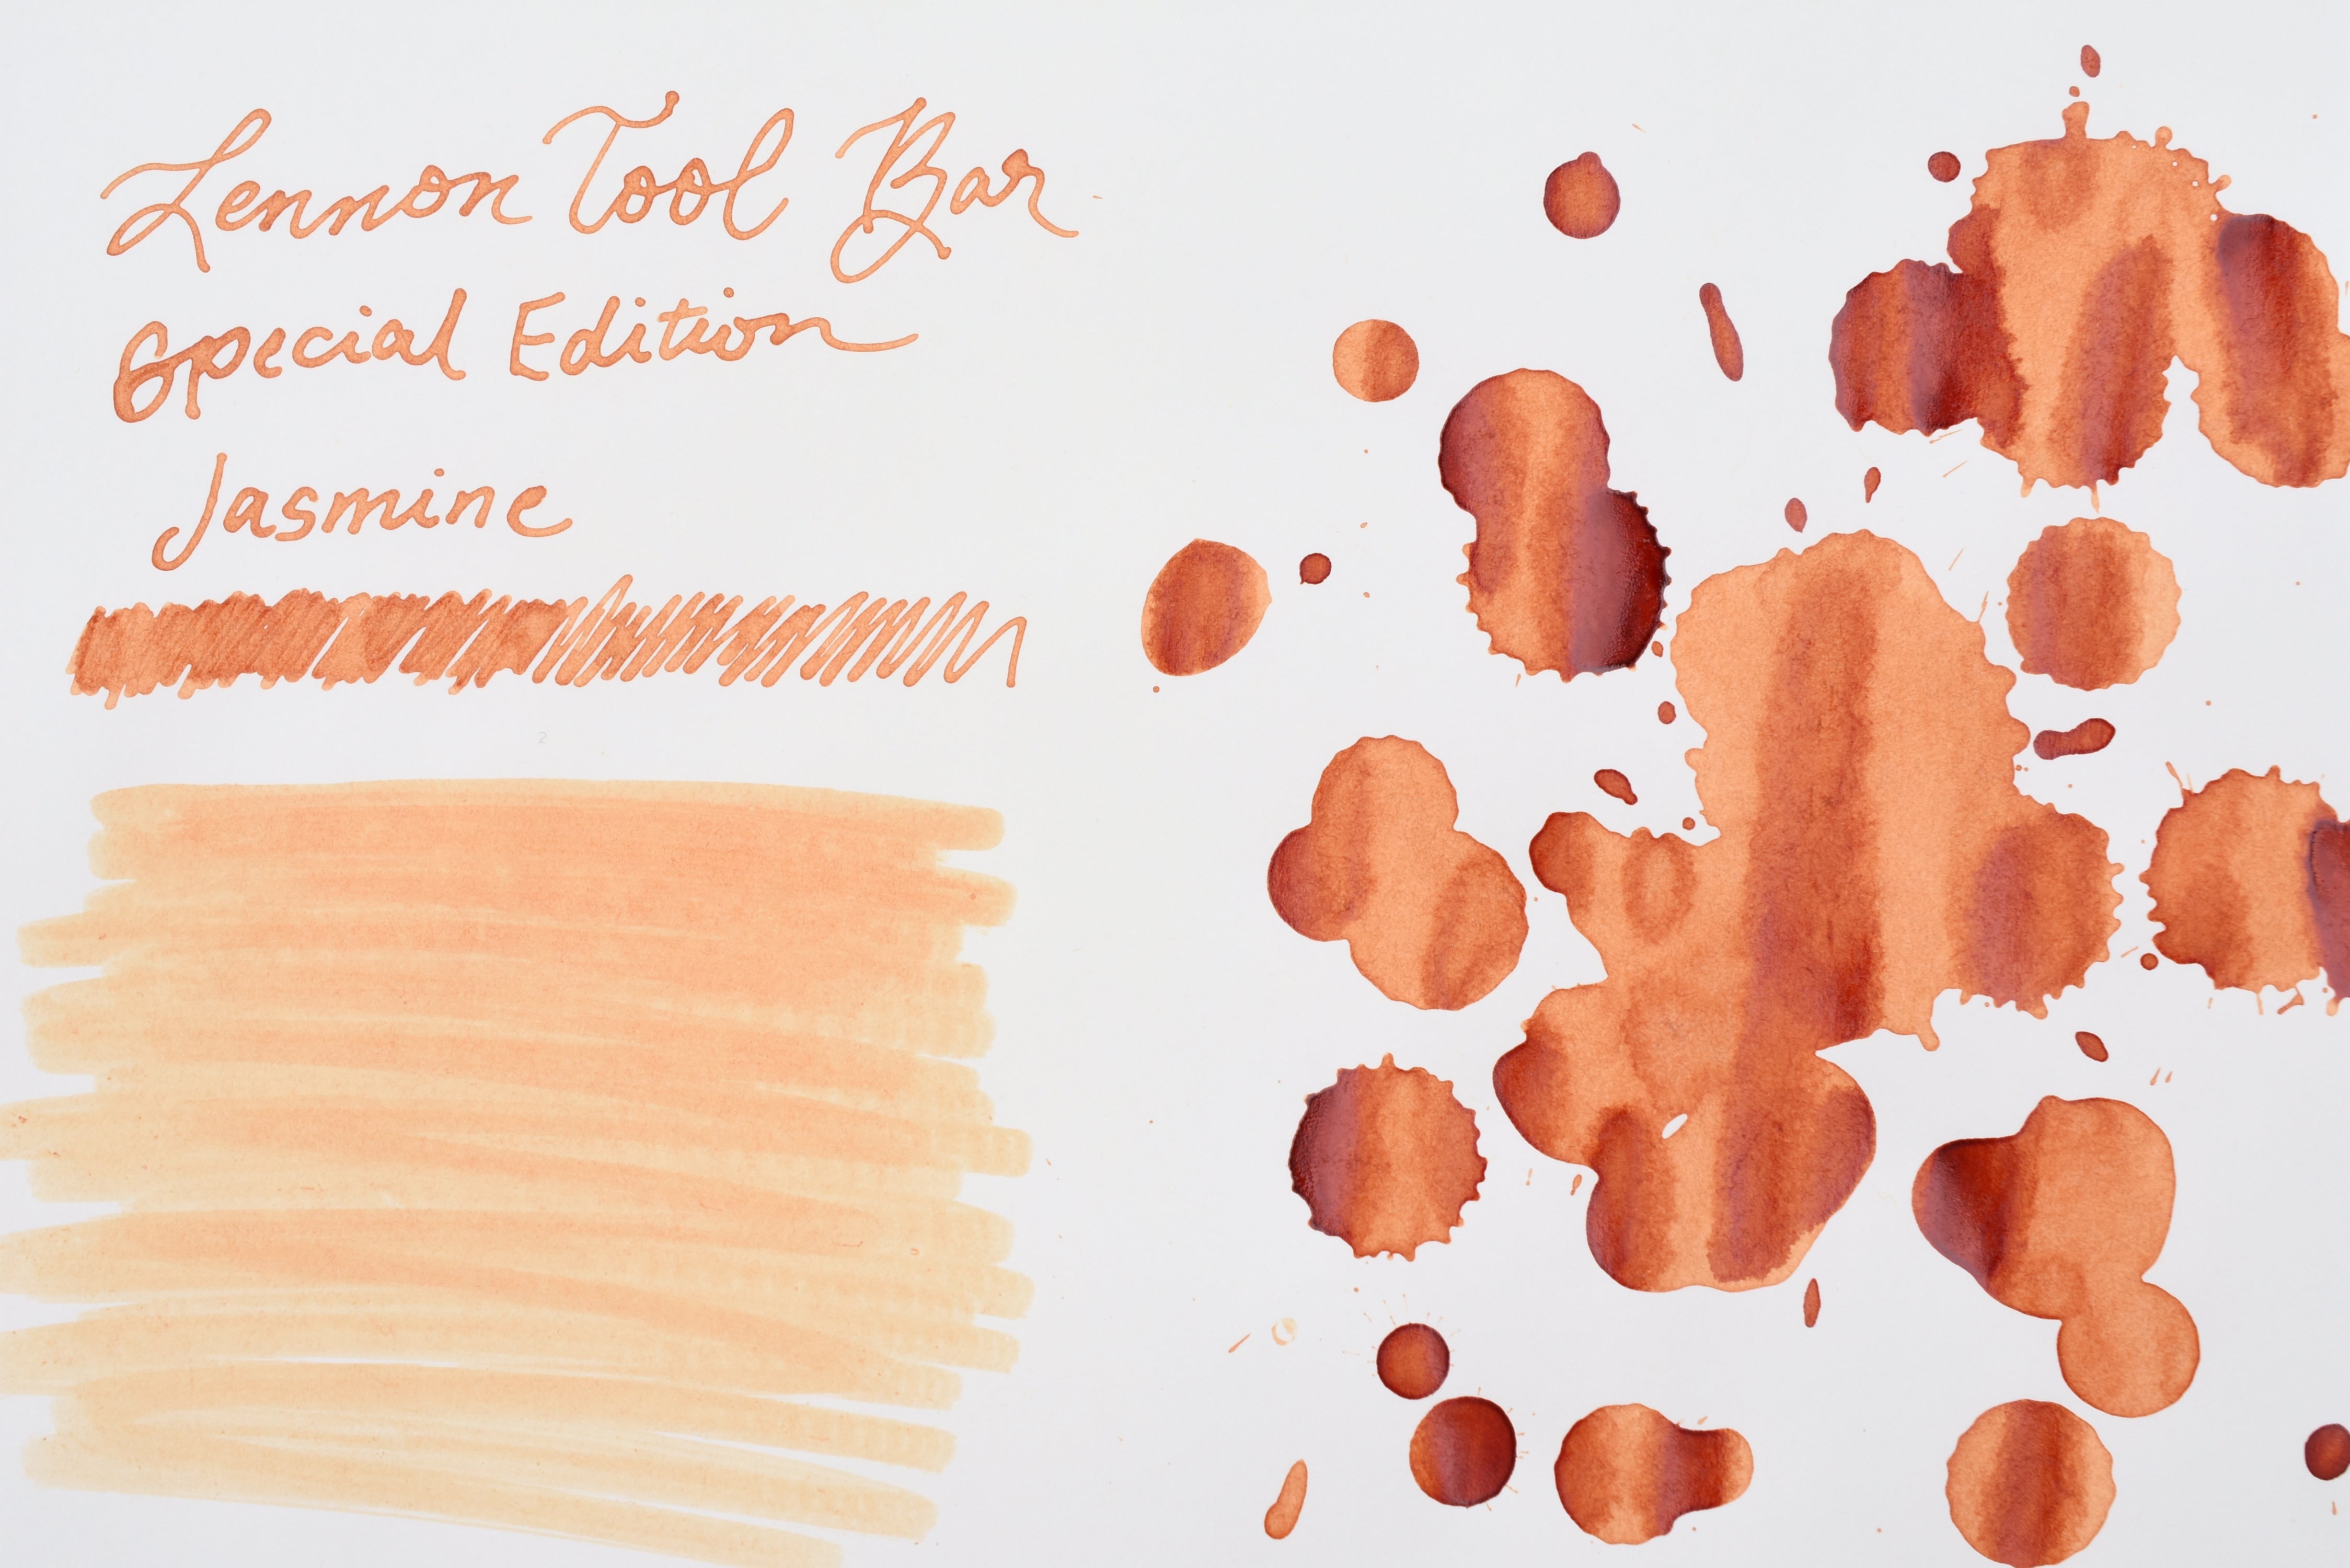 Lennon Tool Bar
Special Edition
Jasmine